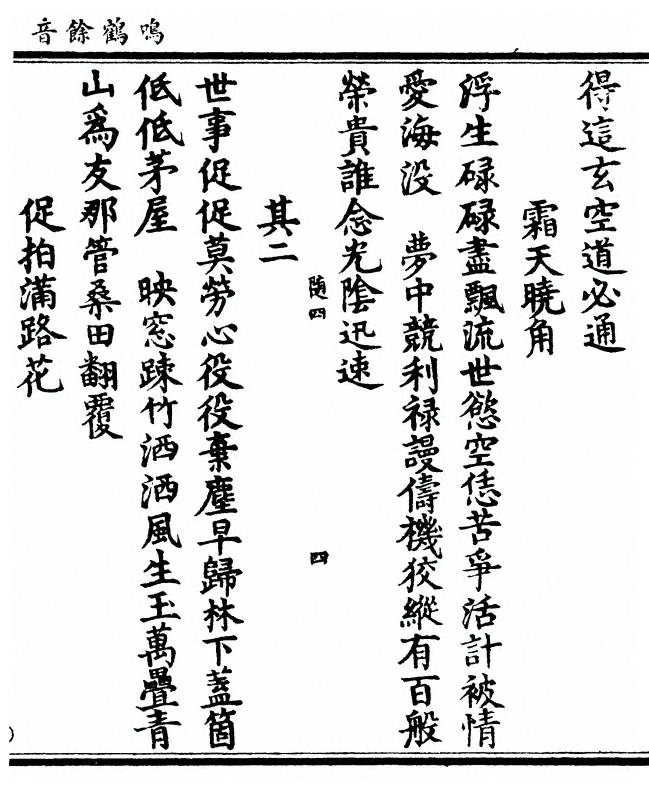 鳴鶴餘音
得這玄空道必通
霜天曉角
浮生碌碌盡飄流世慾空恁苦爭活計被情
愛海没　夢中競利禄謾儔機狡縱有百般
榮貴誰念光陰迅速
隨四
四
其二
世事促促莫勞心役役棄塵早歸林下蓋箇
低低茅屋　映窓踈竹洒洒風生玉萬疊青
山爲友那管桑田翻覆
促拍滿路花